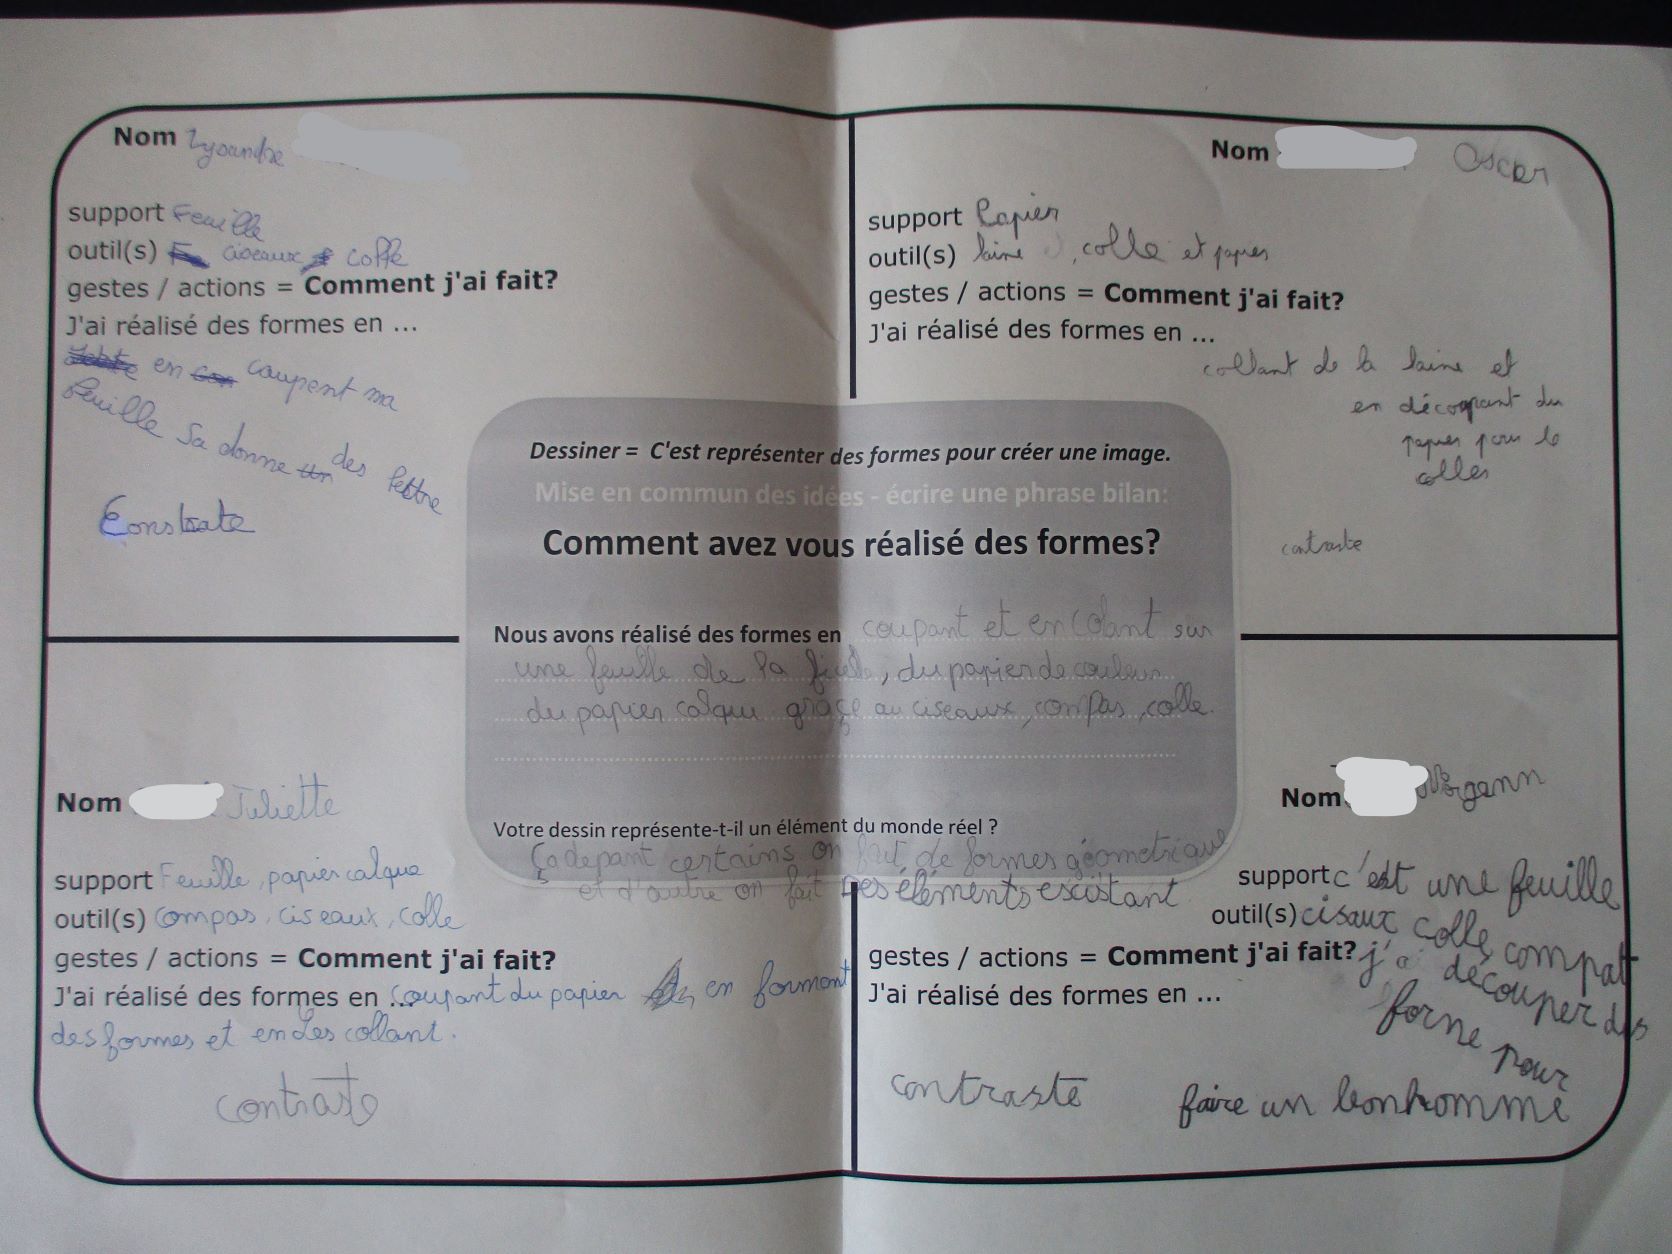 Nom Lysandre
support Feuille
outil(s) ciseaux colle
gestes / actions = Comment j'ai fait?
J'ai réalisé des formes en ...
en coupent ma
feuille sa donne des lettre
Constrate
Nom Oscar
support Papier
outil(s) laine, colle et papier
gestes / actions = Comment j'ai fait?
J'ai réalisé des formes en ...
collant de la laine et
en découpant du
papier pour le
coller
contraste
Dessiner = C'est représenter des formes pour créer une image.
Mise en commun des idées - écrire une phrase bilan:
Comment avez vous réalisé des formes?
Nous avons réalisé des formes en coupant et en colant sur
une feuille de la , du papier de couleur
du papier calque grace au ciseaux, compas, colle.
Votre dessin représente-t-il un élément du monde réel ?
Ça depant certains on fait de formes géometrique
et d'autre on fait des éléments escistant
Nom Juliette
support Feuille, papier calque
outil(s) compas, ciseaux, colle
gestes / actions = Comment j'ai fait?
J'ai réalisé des formes en ... coupant du papier, en formant
des formes et en les collant.
contraste
Nom Morgann
support c'est une feuille
outil(s) cisaux colle compat
gestes / actions = Comment j'ai fait? j'ai découper des
J'ai réalisé des formes en ... forne pour
faire un bonhomme
contraste